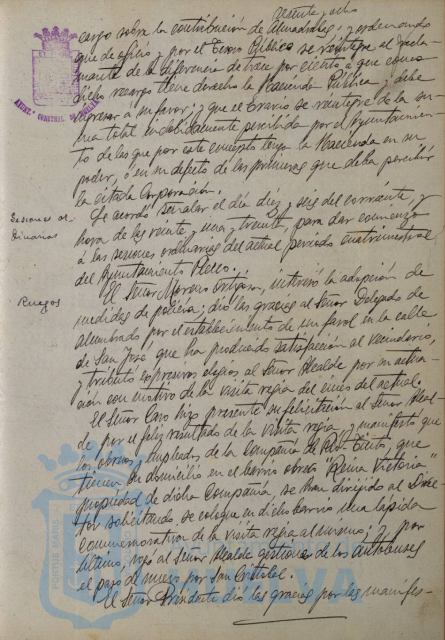 veinte y ocho
cargo sobre la contribución de Almadrabas, y ordenando
que de oficio y por el Tesoro Público se reintegre al recla-
mante de la diferencia de trece por ciento a que como
dicho recargo tiene derecho la Hacienda Pública y debe
ingresar a su favor; y que el Erario se reintegre de la su-
ma total indebidamente percibida por el Ayuntamien-
to de las que por este concepto tenga la Hacienda en su
poder, o en su defecto de las primeras que deba percibir
la citada Corporación.
Sesiones or-
dinarias
Se acordó señalar el día diez y seis del corriente, y
hora de las veinte y una y treinta, para dar comienzo
a las sesiones ordinarias del actual período cuatrimestral
del Ayuntamiento Pleno.
Ruegos
El Señor Moreno Ortega, interesó la adopción de
medidas de policía; dio las gracias al Señor Delegado de
alumbrado por el establecimiento de un farol en la calle
de San José, que ha producido satisfacción al vecindario,
y tributó expresivos elogios al Señor Alcalde por su actua-
ción con motivo de la visita regia del cinco del actual.
El Señor Caro hizo presente su felicitación al Señor Alcal-
de por el feliz resultado de la visita regia, y manifestó que
los obreros y empleados de la Compañía de Río-Tinto, que
tienen su domicilio en el barrio obrero "Reina Victoria"
propiedad de dicha Compañía, se han dirigido al Direc-
tor solicitando se coloque en dicho barrio una lápida
conmemorativa de la visita regia al mismo; y por
último, rogó al Señor Alcalde gestione de los autobuses
el paso de nuevo por San Cristóbal.
El Señor Presidente dio las gracias por las manifes-
AYUNT. CONSTNAL. DE HUELVA
PORTUS MARIS
HUELVA